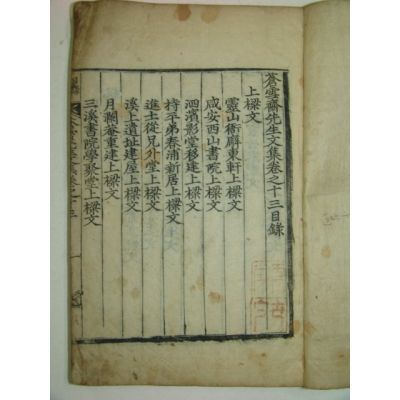 蒼雪齋先生文集卷之十三目錄
上樑文
靈山衙廨東軒上樑文
咸安西山書院上樑文
泗濱影堂移建上樑文
持平弟春浦新居上樑文
進士從兄外堂上樑文
溪上遺址建屋上樑文
月瀾菴重建上樑文
三溪書院學聚堂上樑文